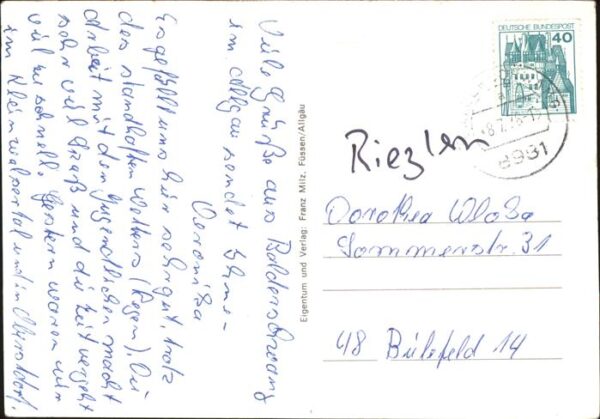 Viele Grüße aus Balderschwang
im Allgäu sendet Ihnen
Veronika
Es gefällt uns hier sehr gut, trotz
des standhaften Wetters (Regen). Die
Arbeit mit den Jugendlichen macht
sehr viel Spaß und die Zeit vergeht
viel zu schnell. Gestern waren wir
im Kleinwalsertal und in Oberstdorf.
Eigentum und Verlag: Franz Milz, Füssen/Allgäu
DEUTSCHE BUNDESPOST
40
8981
Riezlern
Dorothea
Sommerstr. 31
48 Bielefeld 14